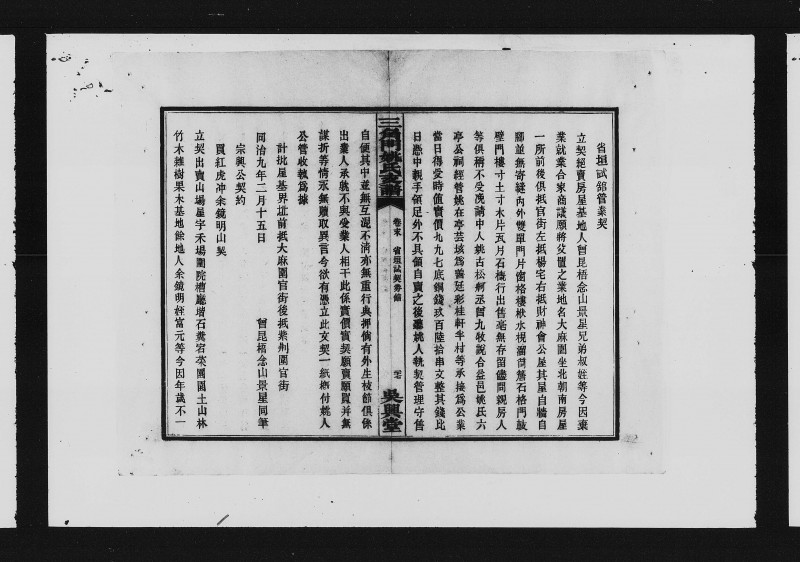 省垣試館管業契
立契絕賣房屋基地人曾昆梧念山景星兄弟叔姪等今因棄
業就業合家商議願將父置之業地名大麻園坐北朝南房屋
一所前後俱抵官街左抵楊宅右抵財神會公屋其屋自牆自
腳並無寄縫內外雙單門片窗格樓栿水梘溜筒簷石格門鼓
壁門樓寸土寸木片瓦片石橋行出售毫無存留儘問親房人
等俱稱不受浼請中人姚古松柯丞曾九牧說合益邑姚氏六
亭公祠經管姚在亭芸垓為善廷彩桂軒半村等承接為公業
當日得受時值賣價九九七底銅錢玖百陸拾串文整其錢比
日憑中親手領足外不具領自賣之後聽姚人執契管理守舊
三魚門姚氏家譜
卷末
省垣試契券館
吳興堂
自便其中並無互混不清亦無重行典押倘有外生枝節俱係
出業人承躭不與受業人相干此係實價實契願賣願買并無
謀折等情永無贖取異言今欲有憑立此文契一紙付姚人
公管收執為據
計批屋基界址前抵大麻園官街後抵紫荊園官街
同治九年二月十五日
曾昆梧念山景星同筆
宗興公契約
買紅虎冲余鏡明山契
立契出賣山場屋宇禾場園院槽廳堦石糞宕菜園園土山林
竹木雜樹果木基地餘地人余鏡明姪富元等今因年歲不一